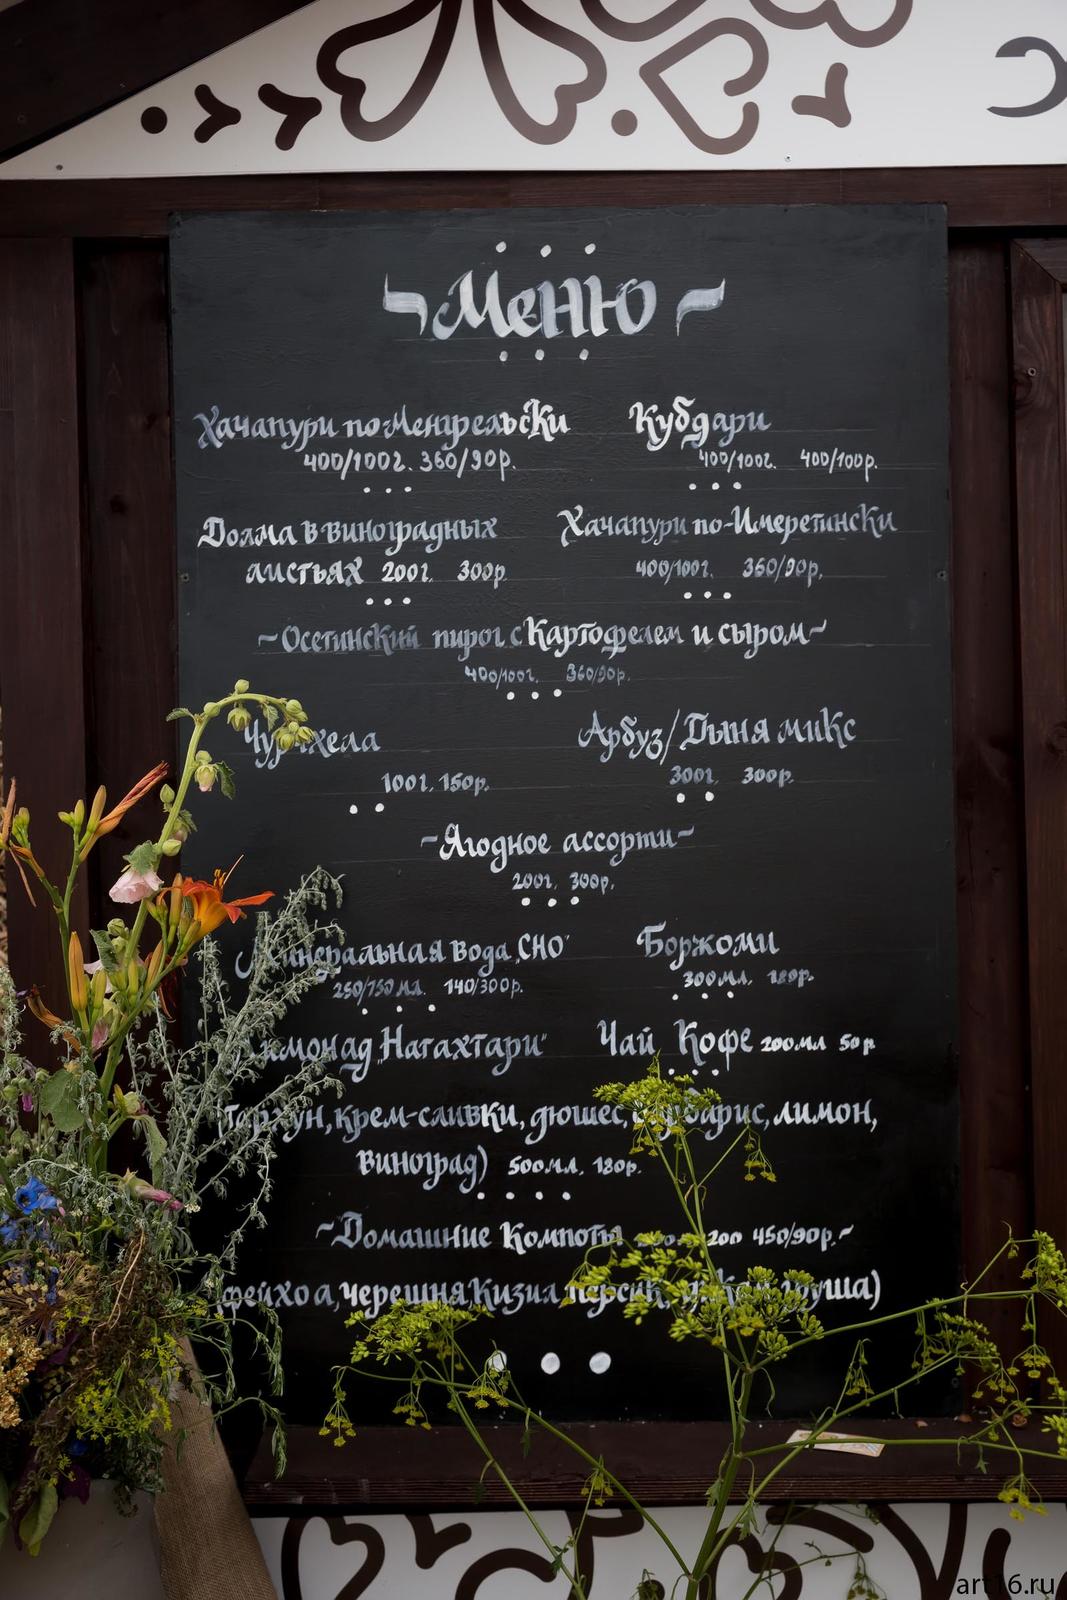 Меню
Хачапури по-Менгрельски
400/100г. 360/90р.
Кубдари
400/100г. 400/100р.
Долма в виноградных
листьях 200г. 300р
Хачапури по-Имеретински
400/100г. 360/90р.
~Осетинский пирог с картофелем и сыром~
400/100г. 360/90р.
100г. 150р.
Арбуз/Дыня микс
300г. 300р.
~Ягодное ассорти~
200г. 300р.
Минеральная вода „СНО"
250/750мл. 140/300р.
Боржоми
300мл. 180р.
Лимонад „Натахтари"
Чай Кофе 200мл 50р
крем-сливки, дюшес, барбарис, лимон,
виноград) 500мл. 180р.
~Домашние Компоты 200 450/90р.~
(фейхоа, черешня, кизил, персик, груша)
art16.ru